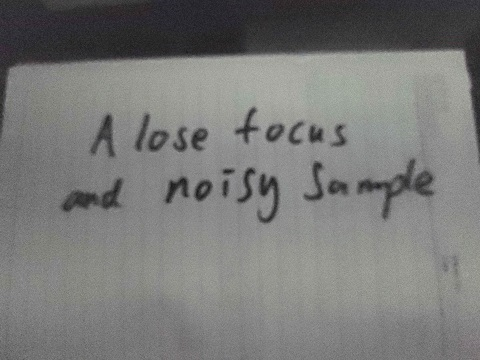 A lose focus
and noisy Sample